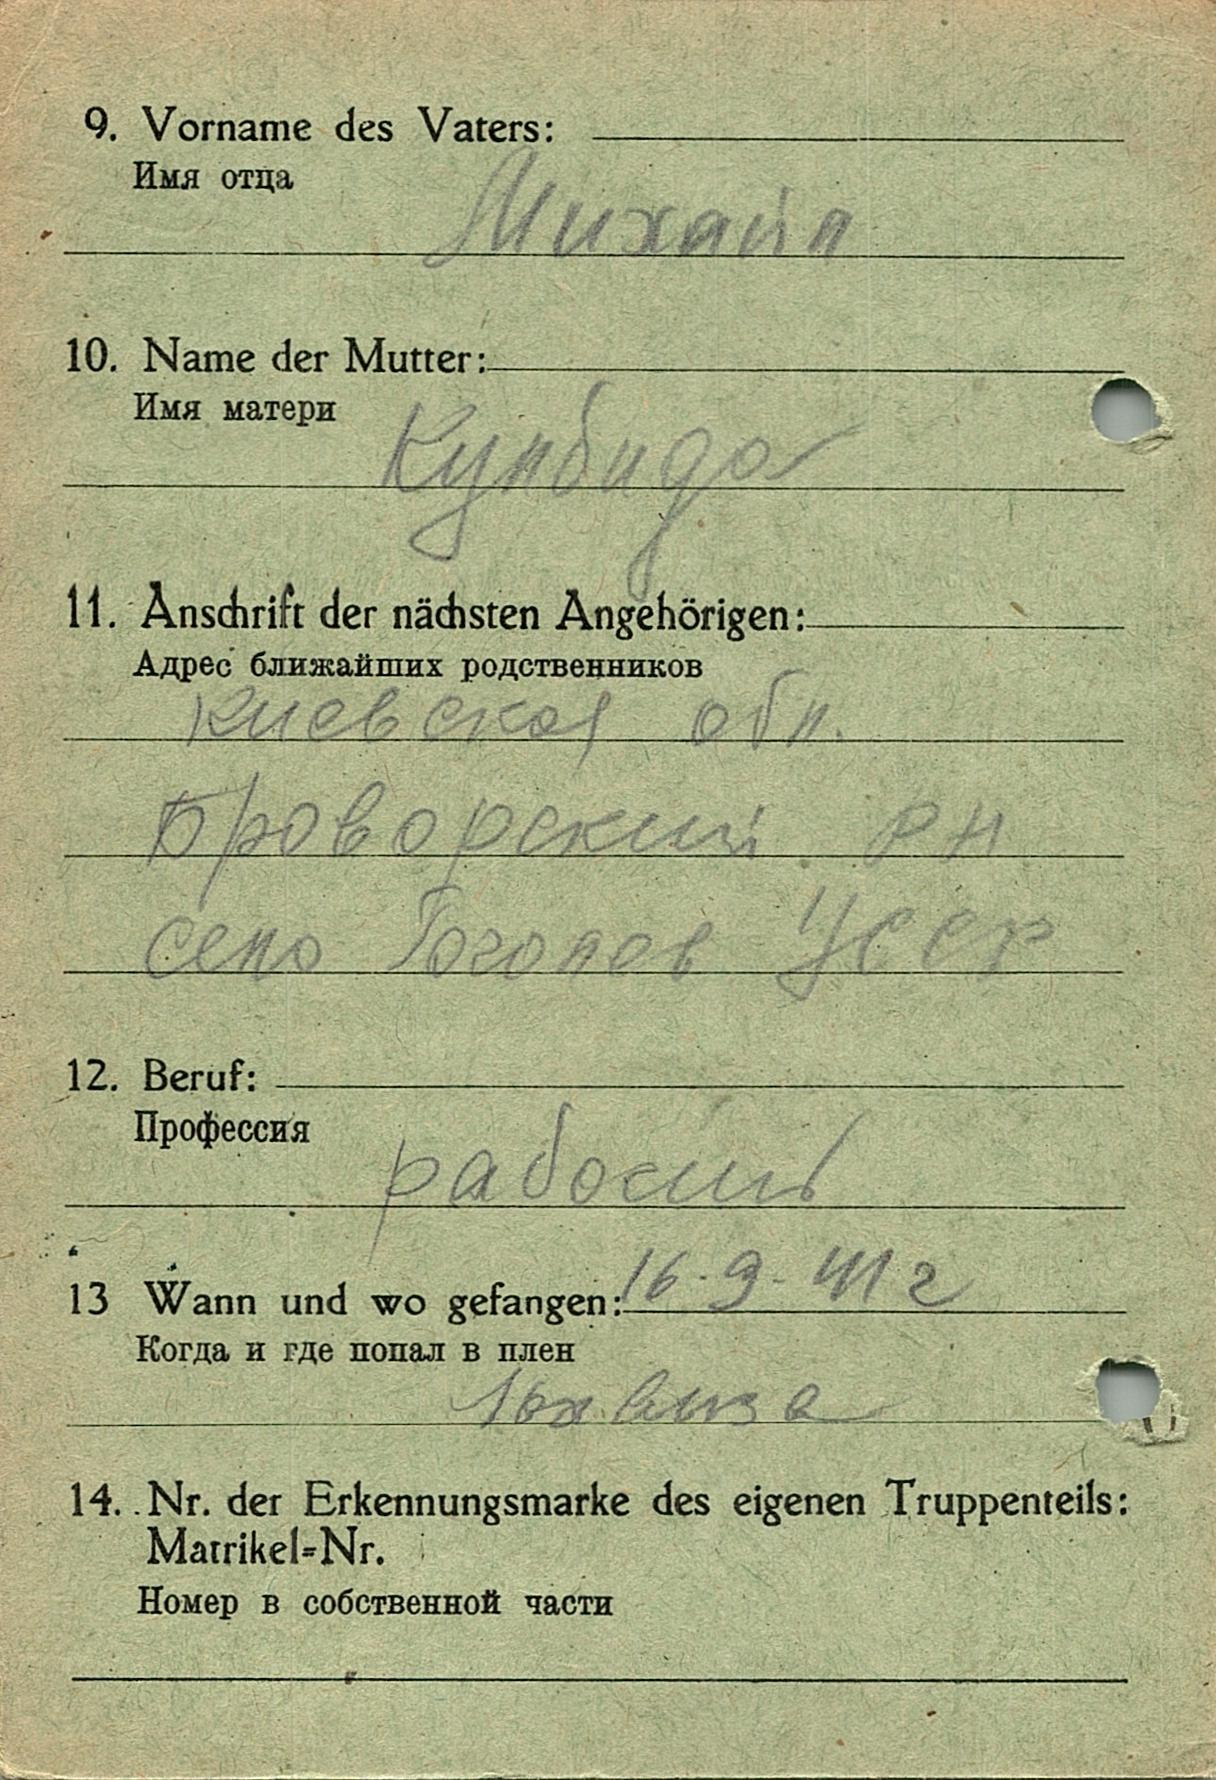 9. Vorname des Vaters:
Имя отца
Михайл
10. Name der Mutter:
Имя матери
Кулбида
11. Anschrift der nächsten Angehörigen:
Адрес ближайших родственников
киевская обл.
Броворский рн
село Гоголев УССР
12. Beruf:
Профессия
13 Wann und wo gefangen: 16.9.41 г
Когда и где попал в плен
14. Nr. der Erkennungsmarke des eigenen Truppenteils:
Matrikel=Nr.
Номер в собственной части